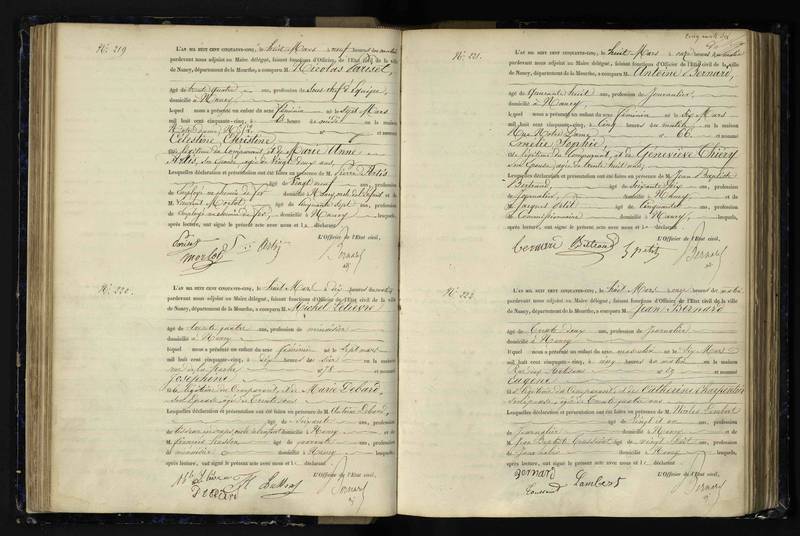 N° 219
L'AN MIL HUIT CENT CINQUANTE-CINQ, le huit Mars à neuf heures du matin
pardevant nous adjoint au Maire délégué, faisant fonctions d'Officier, de l'Etat Civil de la ville
de Nancy, département de la Meurthe, a comparu M. Nicolas Parisel,
âgé de trente quatre ans, profession de Sous chef d'Equipe,
domicilié à Nancy
lequel nous a présenté un enfant du sexe féminin né le sept Mars
mil huit cent cinquante-cinq, à heures du en la maison
et nommé
Célestine Christine
légitime du Comparant, et de Marie Anne
Artis, son épouse, agée de Vingt deux ans,
Lesquelles déclaration et présentation ont été faites en présence de M. Pierre Artis
âgé de Vingt neuf ans, profession
de Employé au chemin de fer domicilié à et de
M. Vincent Morlot âgé de Cinquante sept ans, profession
de Employé au chemin de fer, domicilié à Nancy lesquels,
après lecture, ont signé le présent acte avec nous et l déclarant
L'Officier de l'Etat civil,
Morlot Artis Bernard
N° 220.
L'AN MIL HUIT CENT CINQUANTE-CINQ, le huit Mars à dix heures du matin
pardevant nous adjoint au Maire délégué, faisant fonctions d'Officier de l'Etat Civil de la ville
de Nancy, département de la Meurthe, a comparu M. Michel Lelievre
âgé de trente quatre ans, profession de menuisier
domicilié à Nancy
lequel nous a présenté un enfant du sexe féminin né le sept mars
mil huit cent cinquante-cinq, à dix heures du soir en la maison
n° 78 et nommé
Josephine
légitime du Comparant, et de Marie Debard,
son épouse, agée de Trente ans
Lesquelles déclaration et présentation ont été faites en présence de M. Antoine Debard,
âgé de soixante ans, profession
de domicilié à Nancy et de
M. François âgé de quarante ans, profession
de menuisier domicilié à Nancy lesquels,
après lecture, ont signé le présent acte avec nous et le déclarant
L'Officier de l'Etat civil,
Bernard
N° 221.
L'AN MIL HUIT CENT CINQUANTE-CINQ, le huit Mars à onze heures du matin
pardevant nous adjoint au Maire délégué, faisant fonctions d'Officier de l'Etat civil de la ville
de Nancy, département de la Meurthe, a comparu M. Antoine Bernard,
âgé de Quarante huit ans, profession de Journalier,
domicilié à Nancy,
lequel nous a présenté un enfant du sexe féminin né le Six Mars
mil huit cent cinquante-cinq, à Cinq heures du matin en la maison
Rue Notre Dame n° 66. et nommé
Emélie Sophie,
légitime du Comparant, et de Geneviève Thiery
son Epouse, agée de trente huit ans,
Lesquelles déclaration et présentation ont été faites en présence de M. Jean Baptiste
Bertrand, âgé de Soixante six ans, profession
de Journalier, domicilié à Nancy, et de
M. Jacques Petit âgé de Cinquante ans, profession
de Commissionnaire domicilié à Nancy, lesquels,
après lecture, ont signé le présent acte avec nous et le déclarant
L'Officier de l'Etat civil,
Bernard Bertrand J petit Bernard
N° 222
L'AN MIL HUIT CENT CINQUANTE-CINQ, le huit Mars à onze heures du matin
pardevant nous adjoint au Maire délégué, faisant fonctions d'Officier de l'Etat civil de la ville
de Nancy, département de la Meurthe, a comparu M. Jean Bernard
âgé de Trente deux ans, profession de journalier
domicilié à Nancy
lequel nous a présenté un enfant du sexe masculin né le Six Mars
mil huit cent cinquante-cinq, à cinq heures du matin en la maison
n° 69 et nommé
Eugène
légitime du Comparant, et de Catherine Charpentier
son épouse, agée de Trente quatre ans
Lesquelles déclaration et présentation ont été faites en présence de M. Nicolas Lambert
âgé de vingt et un ans, profession
de Journalier domicilié à Nancy et de
M. Jean Baptiste Toussaint âgé de vingt sept ans, profession
de Journalier domicilié à Nancy lesquels,
après lecture, ont signé le présent acte avec nous et le déclarant
L'Officier de l'Etat civil,
Bernard Lambert
Toussaint Bernard